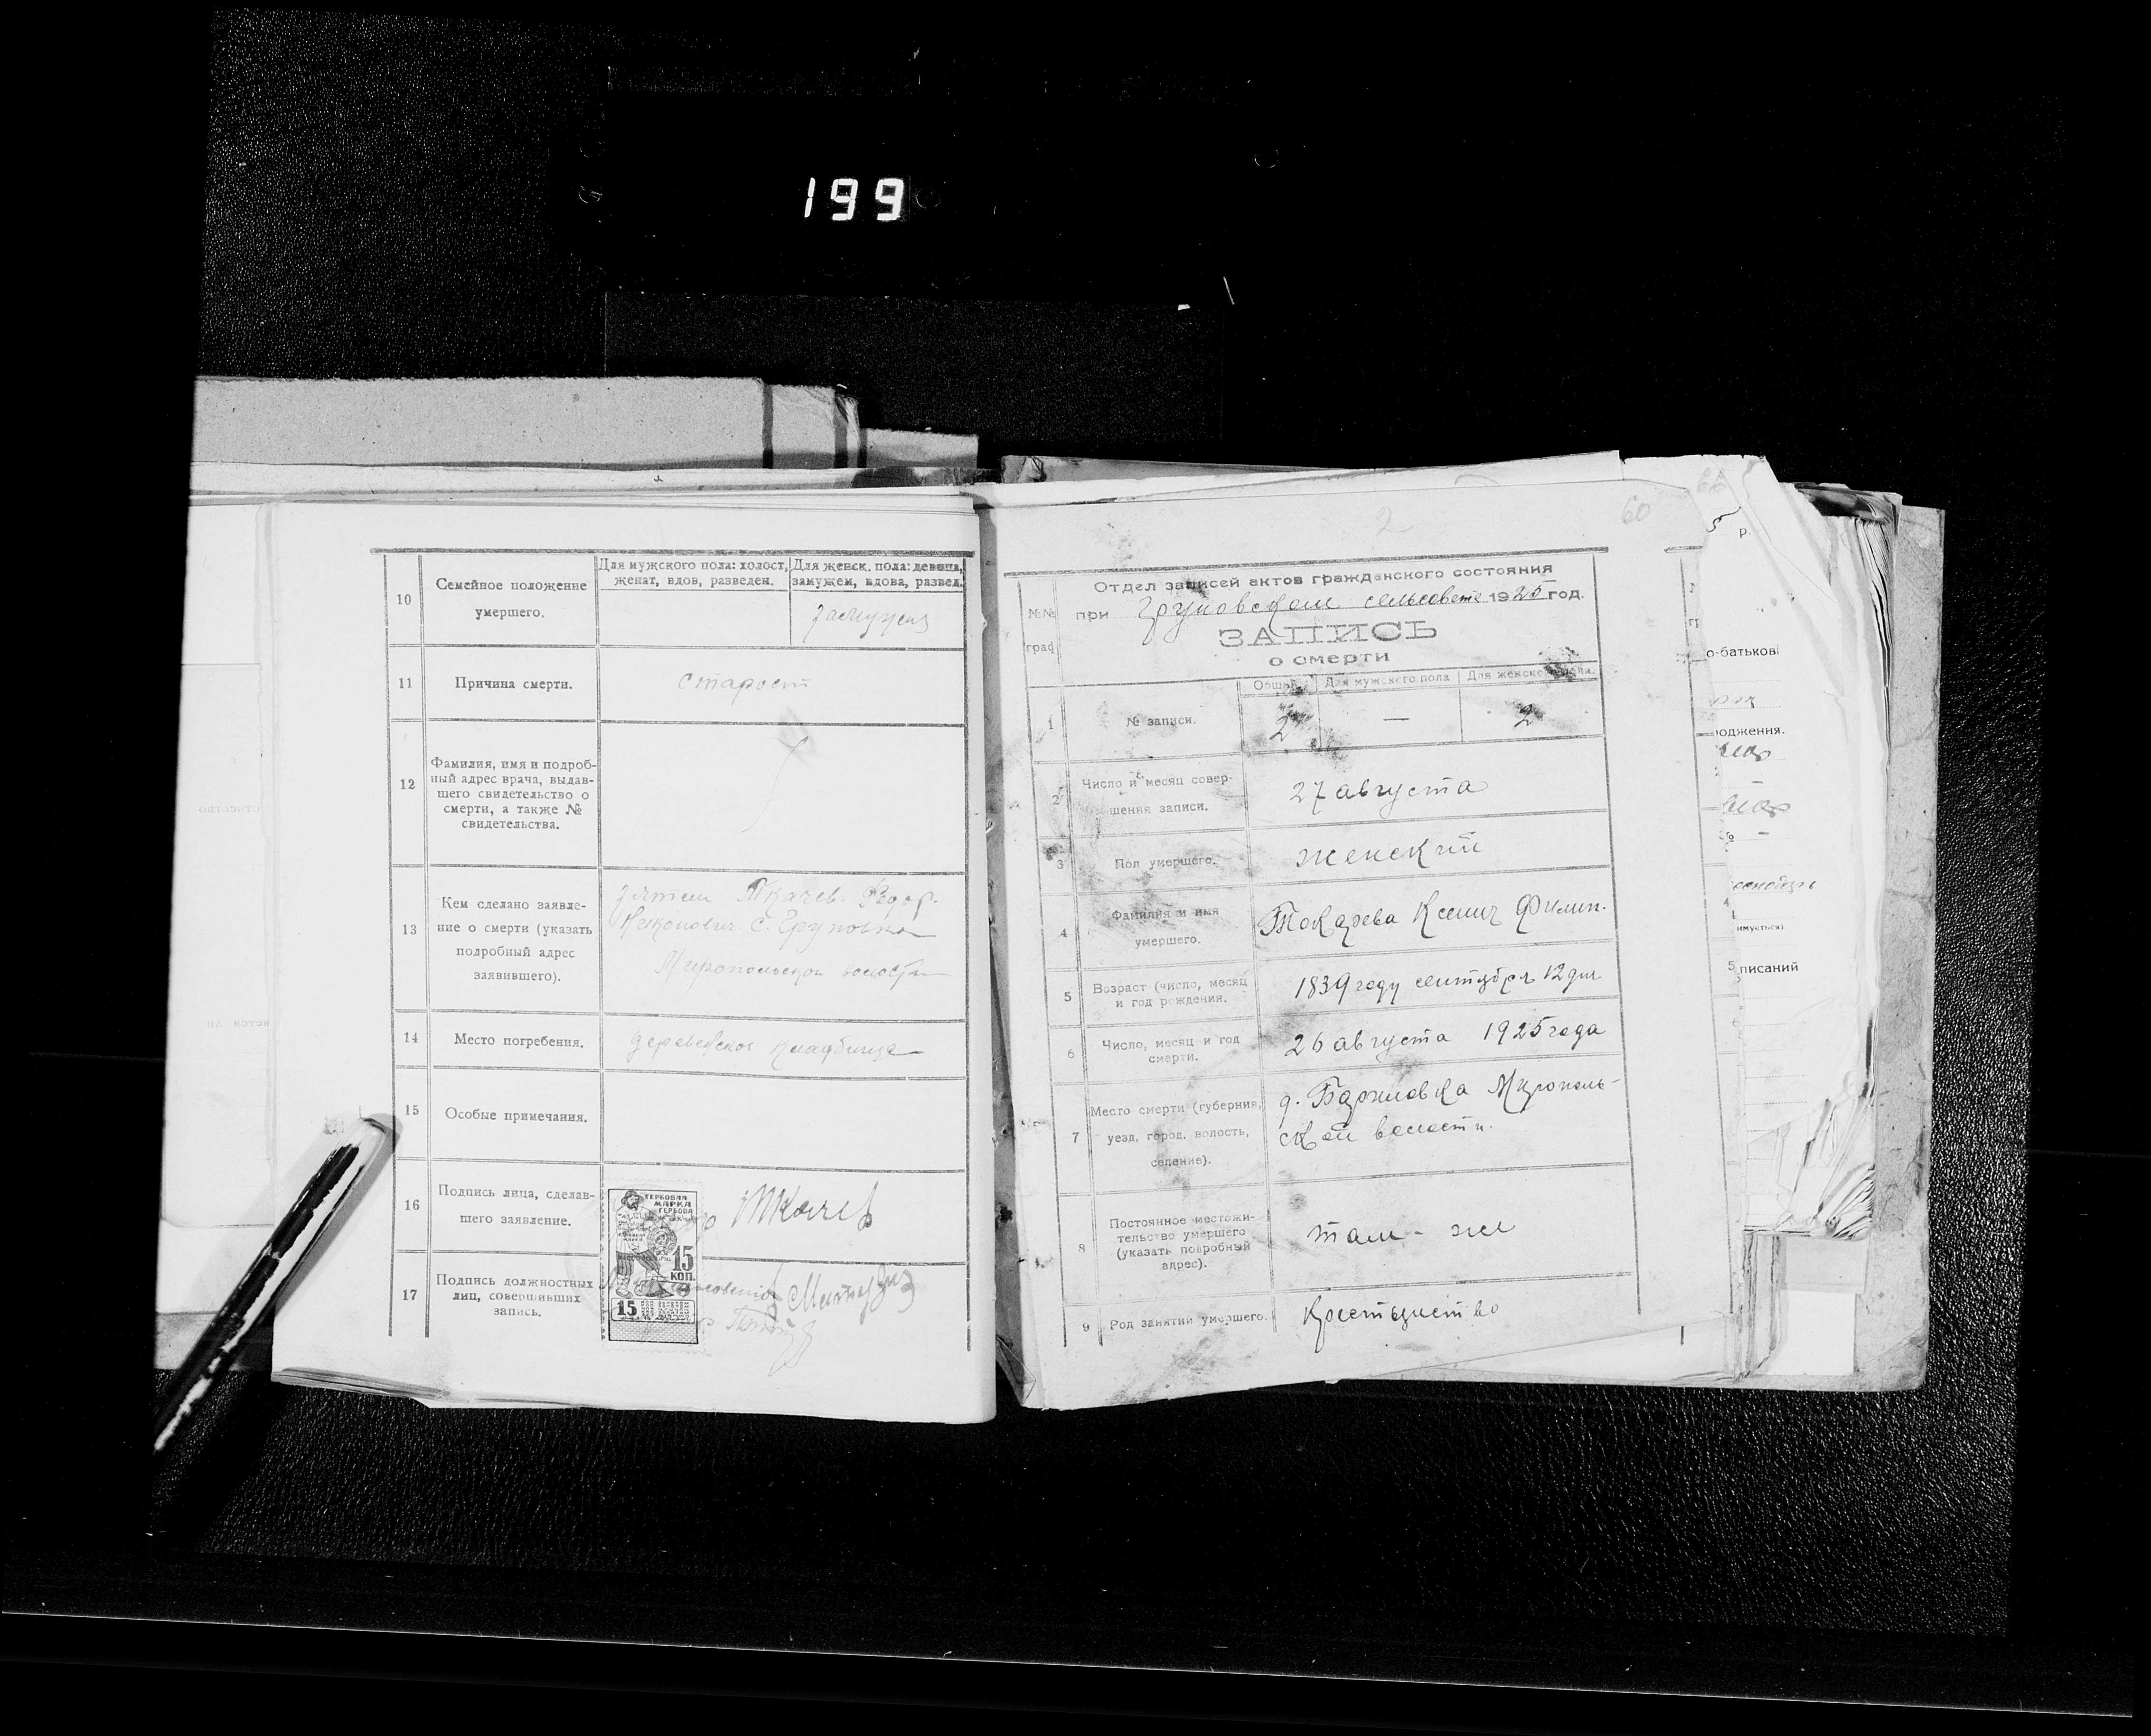 199
10
Семейное положение
умершего.
Для мужского пола: холост,
женат, вдов, разведен.
Для женск. пола: девица,
замужем, вдова, развед.
замужем
11
Причина смерти.
старост
12
Фамилия, имя и подроб-
ный адрес врача, выдав-
шего свидетельство о
смерти, а также №
свидетельства.
13
Кем сделано заявле-
ние о смерти (указать
подробный адрес
заявившего).
зятем Ткачев. Федор.
с. Груновка
Миропольской волости
14
Место погребения.
кладбище
15
Особые примечания.
16
Подпись лица, сделав-
шего заявление.
Ткачев
ГЕРБОВАЯ
МАРКА
15
КОП.
15
17
Подпись должностных
лиц, совершивших
запись.
2
60
66
№№
граф
Отдел записей актов гражданского состояния
при Груновском сельсовете 1925 год.
ЗАПИСЬ
о смерти
Общий
Для мужского пола
Для женского пола.
1
№ записи.
2
—
2
2
Число и месяц совер-
шения записи.
27 августа
3
Пол умершего.
женский
4
Фамилия и имя
умершего.
Токарева Ксения Филип.
5
Возраст (число, месяц
и год рождения.
1839 году сентября 12 дня
6
Число, месяц и год
смерти.
26 августа 1925 года
7
Место смерти (губерния,
уезд, город, волость,
селение).
д. Мирополь-
ской волости.
8
Постоянное местожи-
тельство умершего
(указать подробный
адрес).
там - же
9
Род занятий умершего.
крестьянство
р.
о-батькові
одження.
писаний